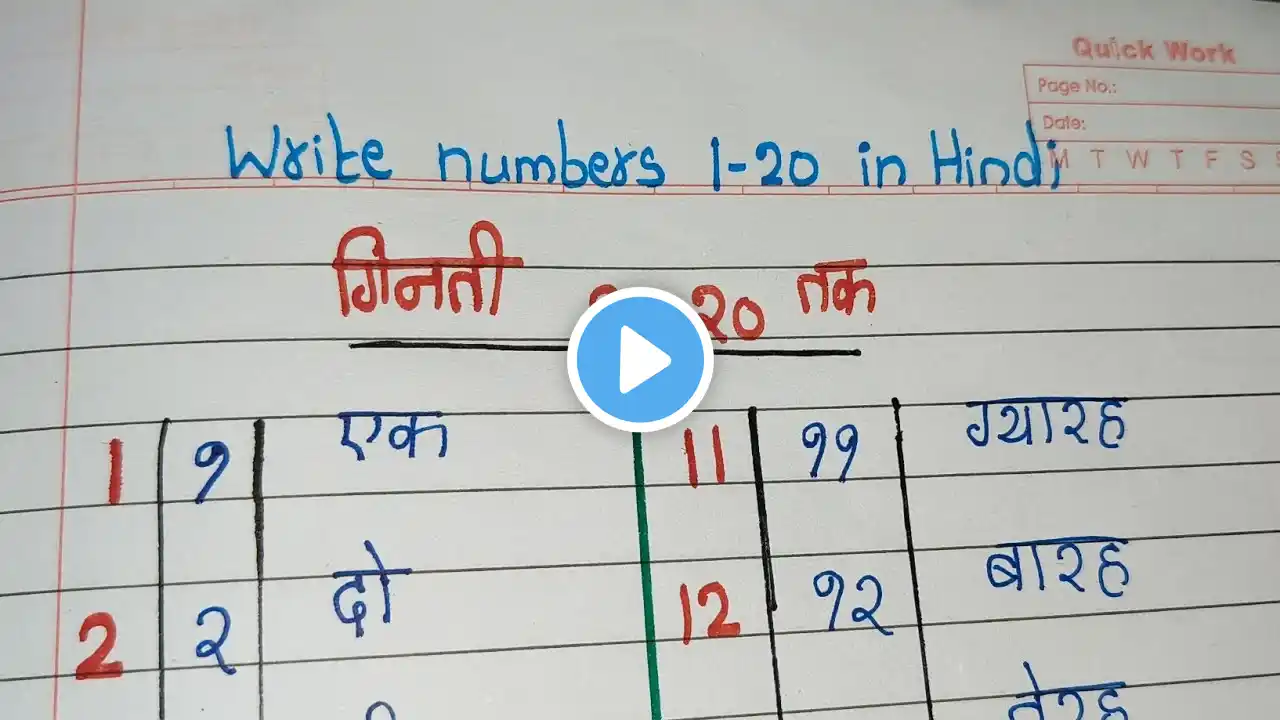 Quick Work
Page No.:
Date:
M T W T F S
Write numbers 1-20 in Hindi
गिनती २० तक
1 १ एक 11 ११ ग्यारह
2 २ दो 12 १२ बारह
तेरह